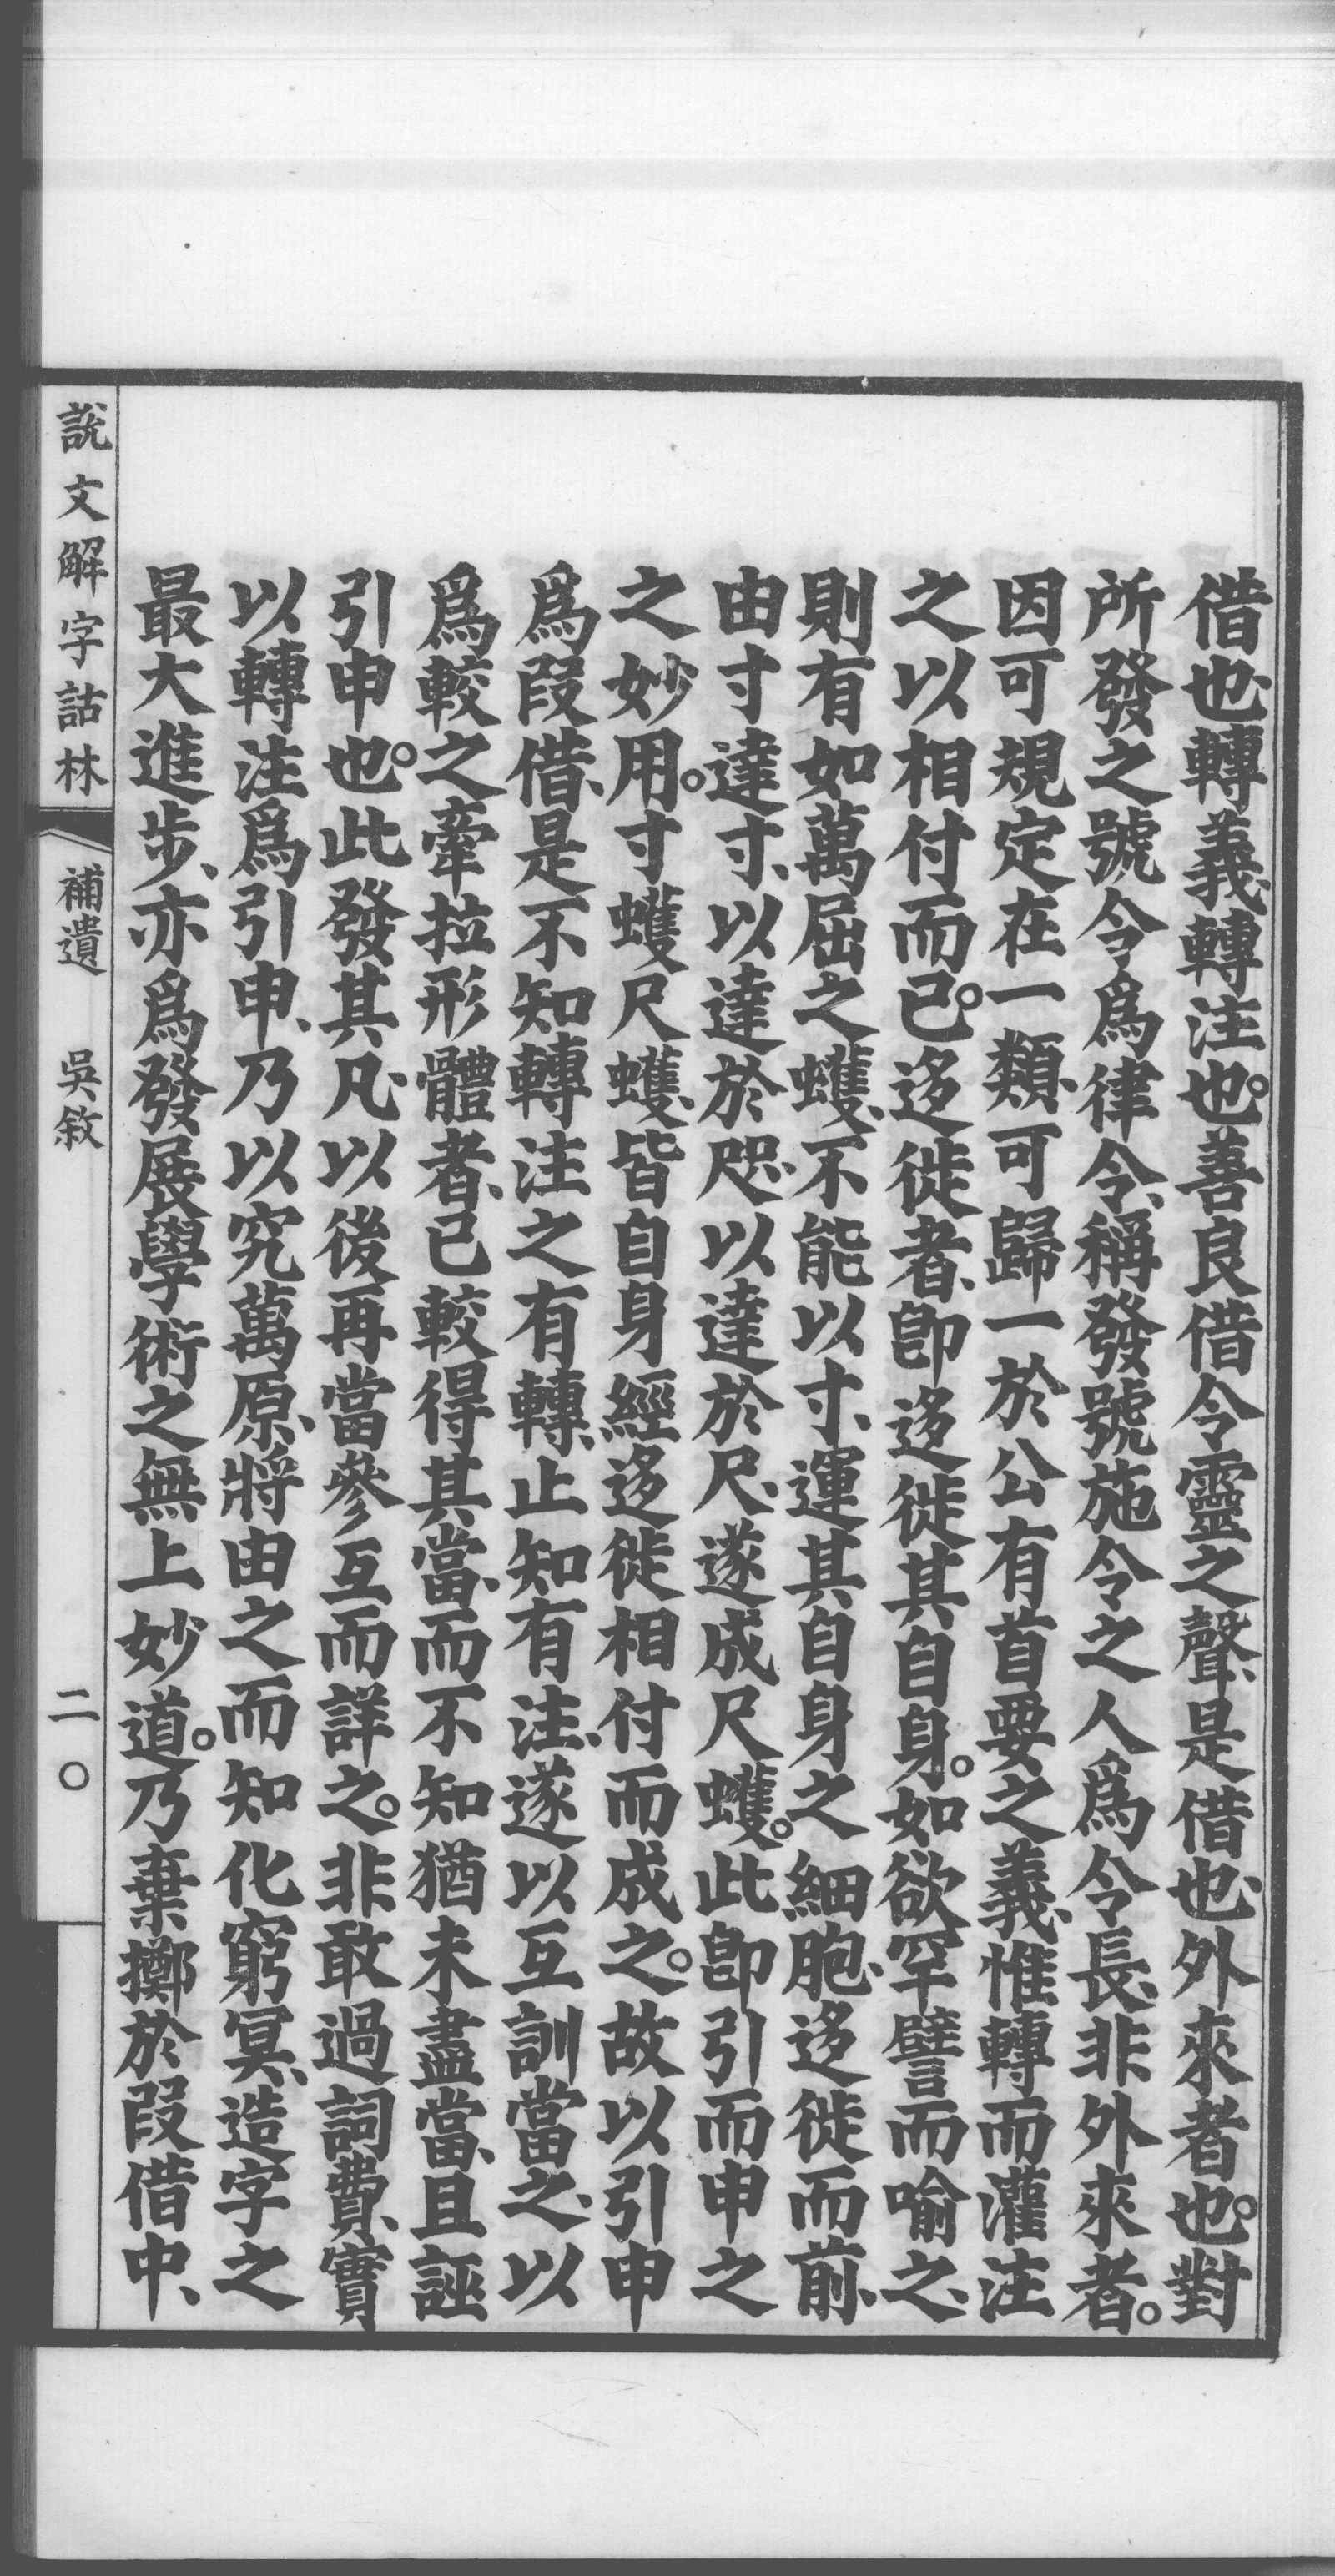 借也、轉義、轉注也。善良借令靈之聲、是借也、外來者也。對
所發之號令爲律令、稱發號施令之人爲令長、非外來者。
因可規定在一類、可歸一於公有首要之義、惟轉而灌注
之以相付而已。迻徙者、卽迻徙其自身。如欲罕譬而喻之、
則有如萬屈之蠖、不能以寸、運其自身之細胞、迻徙而前、
由寸達寸、以達於咫、以達於尺、遂成尺蠖。此卽引而申之
之妙用。寸蠖尺蠖、皆自身經迻徙相付而成之。故以引申
爲叚借、是不知轉注之有轉、止知有注、遂以互訓當之、以
爲較之牽拉形體者、已較得其當、而不知猶未盡當、且誣
引申也。此發其凡、以後再當參互而詳之。非敢過詞費、實
以轉注爲引申、乃以究萬原、將由之而知化窮冥、造字之
最大進步、亦爲發展學術之無上妙道。乃棄擲於叚借中、
說文解字詁林 補遺 吳敘 二〇